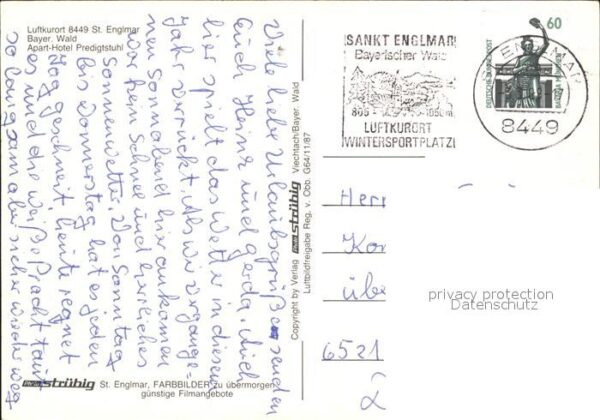 Luftkurort 8449 St. Englmar
Bayer. Wald
Apart-Hotel Predigtstuhl
Viele liebe Urlaubsgrüße senden
Euch Heinz und Gerda. Auch
hier spielt das Wetter in diesem
Jahr verrückt. Als wir vergange-
nen Sonnabend hier ankamen
war kein Schnee und herrliches
Sonnenwetter. Von Sonntag
bis Donnerstag hat es jeden
Tag geschneit, heute regnet
es und die weiße Pracht taut
so langsam aber sicher wieder weg
Copyright by Verlag strübig Viechtach/Bayer. Wald
Luftbildfreigabe Reg. v. Obb. G64/11/87
SANKT ENGLMAR
Bayerischer Wald
LUFTKURORT
WINTERSPORTPLATZ
60
DEUTSCHE BUNDESPOST
8449
Herr
über
privacy protection
Datenschutz
6521
strübig St. Englmar, FARBBILDER zu übermorgen
günstige Filmangebote